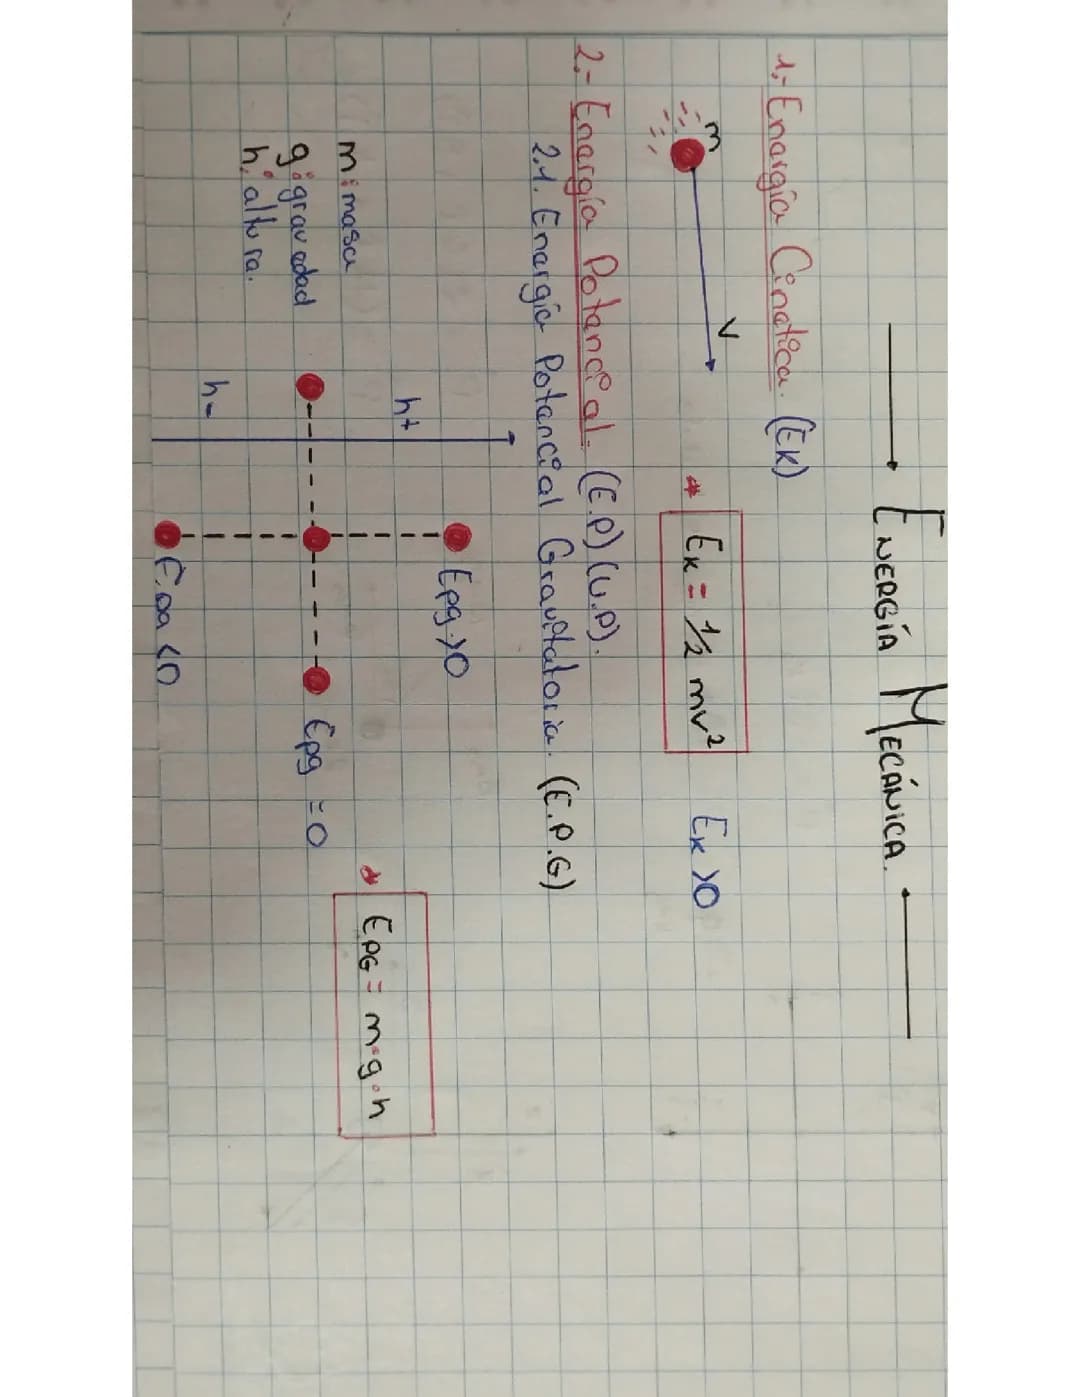 ENERGÍA MECÁNICA.
1,- Energía Cinética. (EK)
m
V
* EK = 1/2 mv² EK >0
2,- Energía Potencial. (E.P) (U.P).
2.1. Energía Potencial Gravitatoria. (E.P.G)
h+
Epg>0
* EPG = m·g·h
m: masa
g: gravedad
h: altura.
Epg = 0
h-
Epg <0